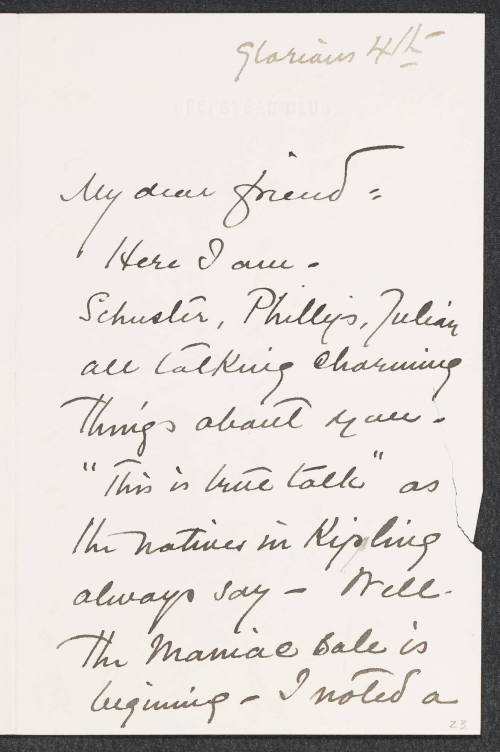 Glorious 4th
My dear friend =
Here I am -
Schuster, Phillips, Julian
all talking charming
things about you -
"This is true talk" as
the natives in Kipling
always say - Well -
The Maniac Sale is
begining - I noted a
23